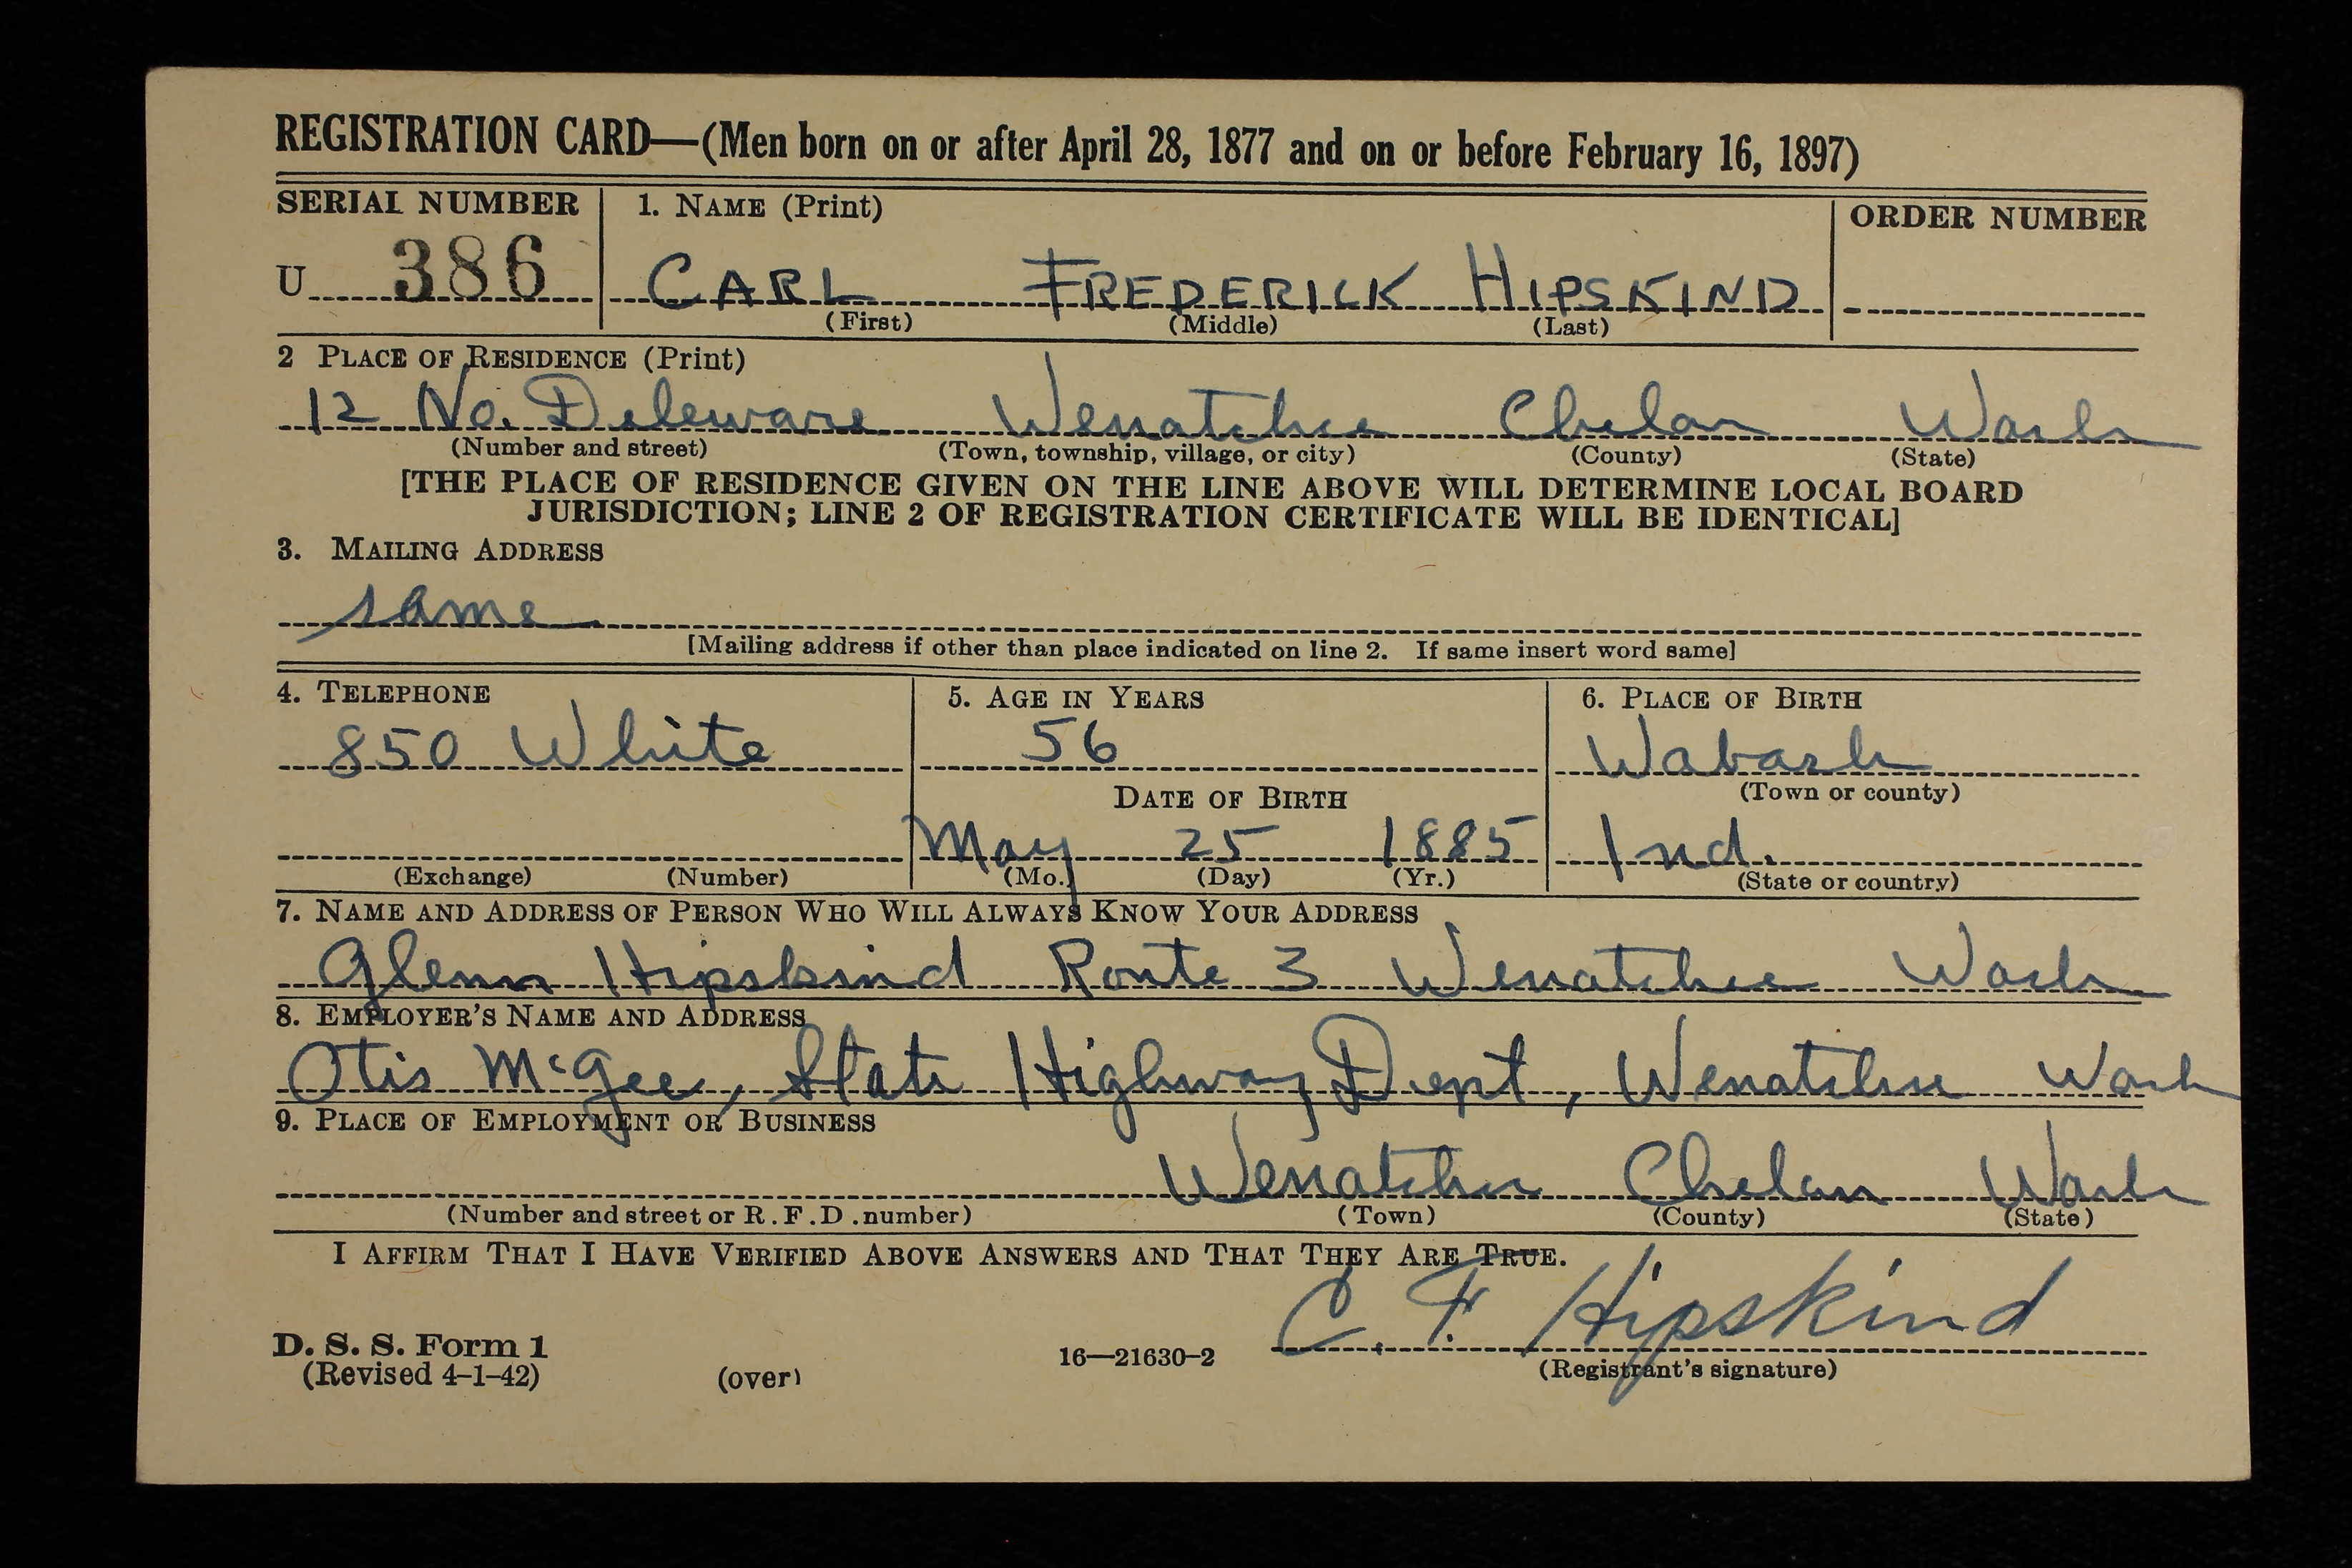 REGISTRATION CARD—(Men born on or after April 28, 1877 and on or before February 16, 1897)
SERIAL NUMBER
1. NAME (Print)
ORDER NUMBER
U 386
CARL FREDERICK HIPSKIND
(First) (Middle) (Last)
2 PLACE OF RESIDENCE (Print)
12 No. Deleware Wenatchee Chelan Wash
(Number and street) (Town, township, village, or city) (County) (State)
[THE PLACE OF RESIDENCE GIVEN ON THE LINE ABOVE WILL DETERMINE LOCAL BOARD
JURISDICTION; LINE 2 OF REGISTRATION CERTIFICATE WILL BE IDENTICAL]
3. MAILING ADDRESS
same
[Mailing address if other than place indicated on line 2. If same insert word same]
4. TELEPHONE
5. AGE IN YEARS
6. PLACE OF BIRTH
850 White
56
Wabash
DATE OF BIRTH
(Town or county)
May 25 1885
Ind.
(Exchange) (Number)
(Mo.) (Day) (Yr.)
(State or country)
7. NAME AND ADDRESS OF PERSON WHO WILL ALWAYS KNOW YOUR ADDRESS
Glenn Hipskind Route 3 Wenatchee Wash
8. EMPLOYER'S NAME AND ADDRESS
Otis McGee, State Highway Dept, Wenatchee Wash
9. PLACE OF EMPLOYMENT OR BUSINESS
Wenatchee Chelan Wash
(Number and street or R.F.D. number) (Town) (County) (State)
I AFFIRM THAT I HAVE VERIFIED ABOVE ANSWERS AND THAT THEY ARE TRUE.
C. F. Hipskind
D. S. S. Form 1
(Revised 4-1-42)
(over)
16—21630-2
(Registrant's signature)